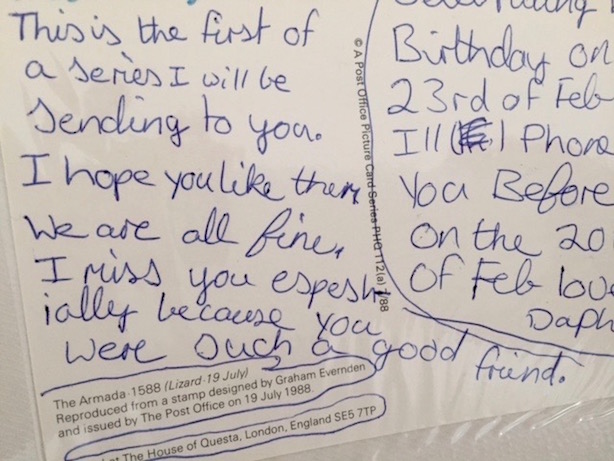 This is the first of
a series I will be
Sending to you.
I hope you like them
We are all fine,
I miss you espesh
ially because you
were such a good friend.
The Armada·1588 (Lizard·19 July)
Reproduced from a stamp designed by Graham Evernden
and issued by The Post Office on 19 July 1988.
at The House of Questa, London, England SE5 7TP
© A Post Office Picture Card Series PHQ 112(a) 7/88
Birthday on
23rd of Feb
I'll Phone
You Before
On the 20
Of Feb love
Daph